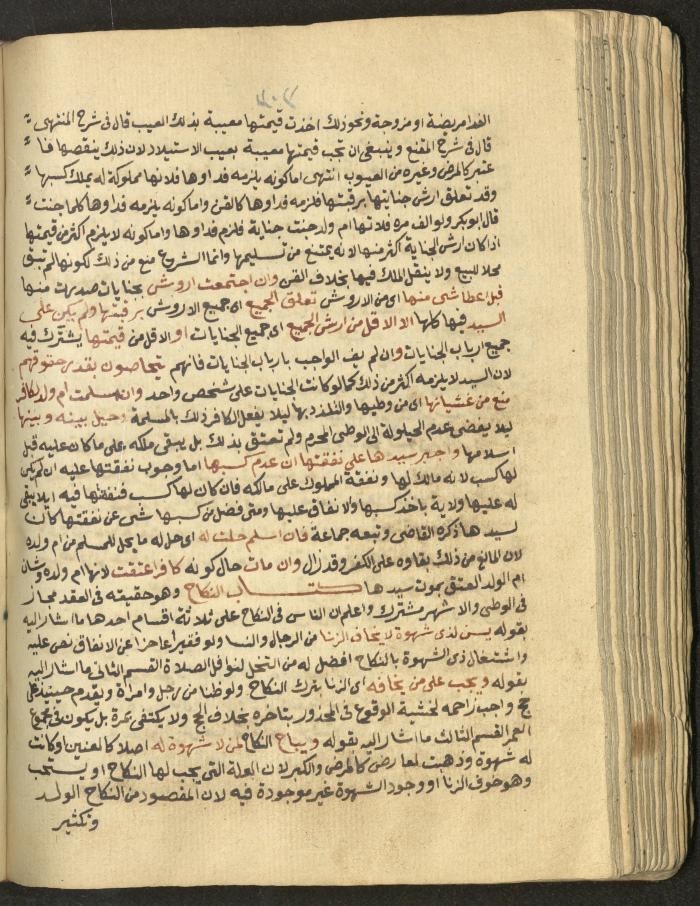 الفدا مريضة او مزوجة ونحو ذلك اخذت قيمتها معيبة بذلك العيب قال فى شرح المنتهى
قال فى شرح المقنع وينبغى ان تجب قيمتها معيبة بعيب الاستيلاد لان ذلك ينقصها فا
عتبر كالمرض وغيره من العيوب انتهى اما كونه يلزمه فداوها فلانها مملوكة له يملك كسبها
وقد تعلق ارش جنايتها برقبتها فلزمه فداوها كالقن واما كونه يلزمه فداوها كلما جنت
قال ابو بكر ولو الف مره فلانها ام ولد جنت جناية فلزم فداوها واما كونه لا يلزم اكثر من قيمتها
اذا كان ارش الجناية اكثر منها لانه يمتنع من تسليمها وانما الشرع منع من ذلك لكونها لم تبق
محلا للبيع ولا ينقل الملك فيها بخلاف القن وان اجتمعت اروش بجنايات صدرت منها
قبل اعطا شى منها اى من الاروش تعلق الجميع اى جميع الاروش برقبتها ولم يكن على
السيد فيها كلها الا الاقل من ارش الجميع اى جميع الجنايات او الاقل من قيمتها يشترك فيه
جميع ارباب الجنايات وان لم يف الواجب بارباب الجنايات فانهم يتحاصون بقدر حقوقهم
لان السيد لا يلزمه اكثر من ذلك كما لو كانت الجنايات على شخص واحد وان اسلمت ام ولد لكافر
منع من غشيانها اى من وطيها والتلذذ بها ليلا يفعل الكافر ذلك بالمسلمة وحيل بينه وبينها
ليلا يفضى عدم الحيلولة الى الوطى المحرم ولم تعتق بذلك بل يبقى ملكه على ما كان عليه قبل
اسلامها واجبر سيدها على نفقتها ان عدم كسبها اما وجوب نفقتها عليه ان لم يكن
لها كسب لانه مالك لها ونفقة المملوك على مالكه فان كان لها كسب فنفقتها فيه ليلا يبقى
له عليها ولاية باخذ كسبها والانفاق عليها ومتى فضل من كسبها شى عن نفقتها كان
لسيدها ذكره القاضى وتبعه جماعة فان اسلم حلت له اى حل له ما يحل للمسلم من ام ولده
لان المانع من ذلك بقاوه على الكفر وقد زال وان مات حال كونه كافرا عتقت لانها ام ولده وشان
ام الولد العتق بموت سيدها كتاب النكاح وهو حقيقه فى العقد مجاز
فى الوطى والاشهر مشترك واعلم ان الناس فى النكاح على ثلاثة اقسام احدها ما اشار اليه
بقوله يسن لذى شهوة لا يخاف الزنا من الرجال والنسا ولو فقيرا عاجزا عن الانفاق نص عليه
واشتغال ذى الشهوة بالنكاح افضل له من التخلى لنوافل الصلاة القسم الثانى ما اشار اليه
بقوله ويجب على من يخافه اى الزنا بترك النكاح ولو ظنا من رجل وامراة ويقدم حينيذ على
حج واجب زاحمه لخشية الوقوع فى المحذور بتاخره بخلاف الحج ولا يكتفى بمرة بل يكون فى مجموع
العمر القسم الثالث ما اشار اليه بقوله ويباح النكاح لمن لا شهوة له اصلا كالعنين او كانت
له شهوة وذهبت لعارض كالمرض والكبر لان العلة التى يجب لها النكاح او يستحب
وهو خوف الزنا او وجود الشهوة غير موجودة فيه لان المقصود من النكاح الولد
وتكثير